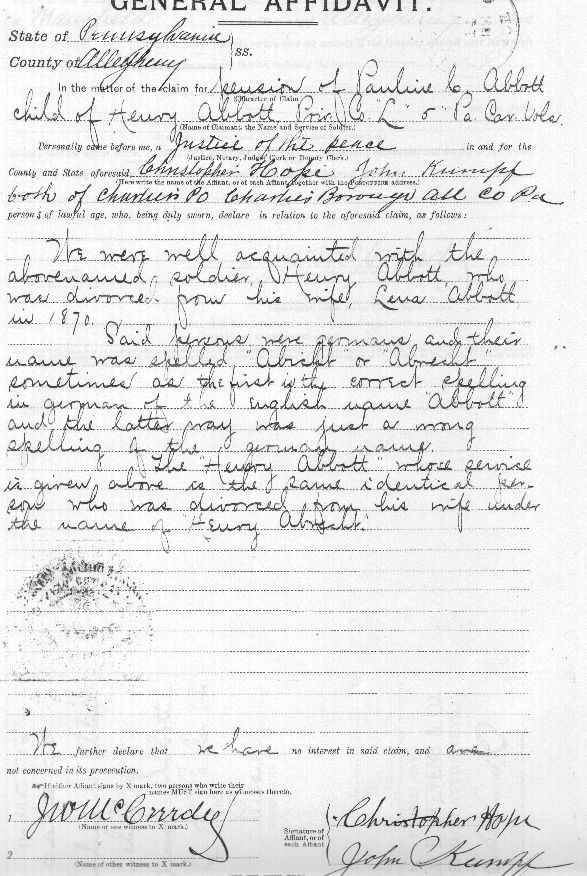 GENERAL AFFIDAVIT.
State of Pennsylvania
County of Allegheny ss.
In the matter of the claim for pension of Pauline C. Abbott
(Character of Claim
child of Henry Abbott, Priv. Co "L" 5" Pa Cav. Vols.
(Name of Claimant, the Name and Service of Soldier.)
Personally came before me, a Justice of the peace in and for the
(Justice, Notary, Judge, Clerk or Deputy Clerk.)
County and State aforesaid Christopher Hope John Kumpf
(Here write the name of the Affiant, or of each Affiant, together with the Postoffice address.)
both of Chartiers PO Chartiers Borough All Co Pa
persons of lawful age, who, being duly sworn, declare in relation to the aforesaid claim, as follows:
We were well acquainted with the
abovenamed soldier, Henry Abbott, who
was divorced from his wife, Lena Abbott
in 1870.
Said persons were germans and their
name was spelled "Abicht" or "Abrecht"
sometimes as the first is the correct spelling
in german of the English name "Abbott"
and the latter way was just a wrong
spelling of the german name.
The "Henry Abbott" whose service
is given above is the same identical per-
son who was divorced from his wife under
the name of "Henry Abrecht."
We further declare that we have no interest in said claim, and are
not concerned in its prosecution.
If either Affiant signs by X mark, two persons who write their
names MUST sign here as witnesses thereto.
1
(Name of one witness to X mark.)
2
(Name of other witness to X mark.)
Signature of
Affiant, or of
each Affiant
Christopher Hope
John Kumpf